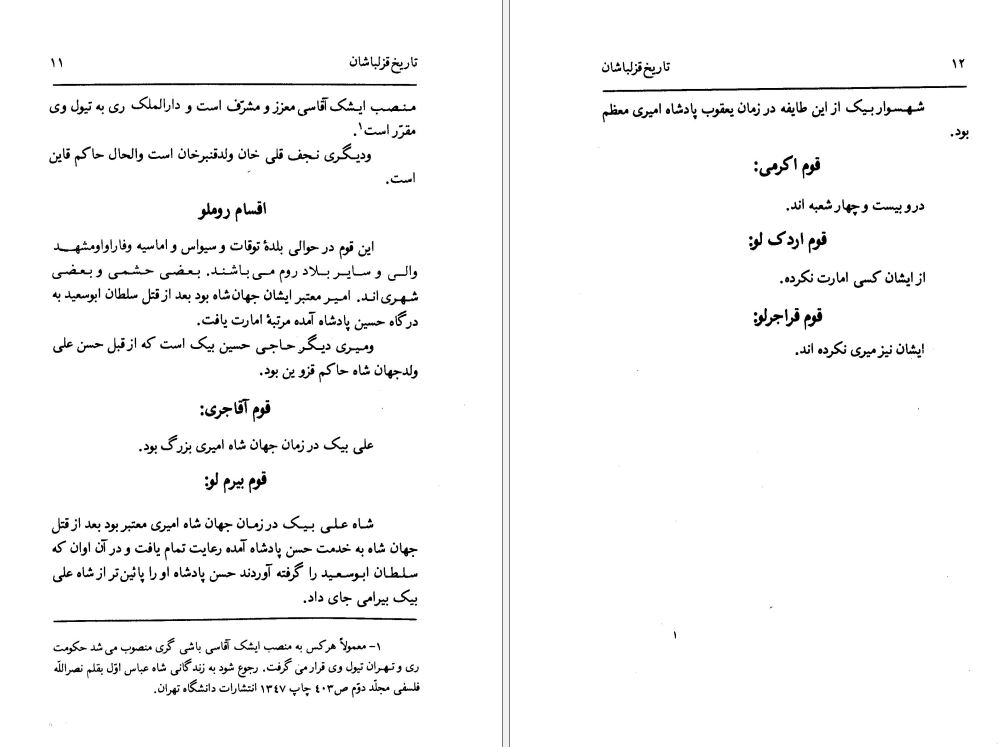 تاریخ قزلباشان ۱۱
منصب ایشک آقاسی معزز و مشرّف است و دارالملک ری به تیول وی
مقرّر است۱.
ودیگری نجف قلی خان ولدقنبرخان است والحال حاکم قاین
است.
اقسام روملو
این قوم در حوالی بلدهٔ توقات و سیواس و اماسیه وفاراواومشهد
والی و سایر بلاد روم می باشند. بعضی حشمی و بعضی
شهری اند. امیر معتبر ایشان جهان شاه بود بعد از قتل سلطان ابوسعید به
درگاه حسین پادشاه آمده مرتبهٔ امارت یافت.
ومیری دیگر حاجی حسین بیک است که از قبل حسن علی
ولدجهان شاه حاکم قزوین بود.
قوم آقاجری:
علی بیک در زمان جهان شاه امیری بزرگ بود.
قوم بیرم لو:
شاه علی بیک در زمان جهان شاه امیری معتبر بود بعد از قتل
جهان شاه به خدمت حسن پادشاه آمده رعایت تمام یافت و در آن اوان که
سلطان ابوسعید را گرفته آوردند حسن پادشاه او را پائین تر از شاه علی
بیک بیرامی جای داد.
۱- معمولاً هرکس به منصب ایشک آقاسی باشی گری منصوب می شد حکومت
ری و تهران تیول وی قرار می گرفت. رجوع شود به زندگانی شاه عباس اوّل بقلم نصراللّه
فلسفی مجلّد دوّم ص۴۰۳ چاپ ۱۳۴۷ انتشارات دانشگاه تهران.
۱۲ تاریخ قزلباشان
شهسواربیک از این طایفه در زمان یعقوب پادشاه امیری معظم
بود.
قوم اکرمی:
درو بیست و چهار شعبه اند.
قوم اردک لو:
از ایشان کسی امارت نکرده.
قوم قراجرلو:
ایشان نیز میری نکرده اند.
۱